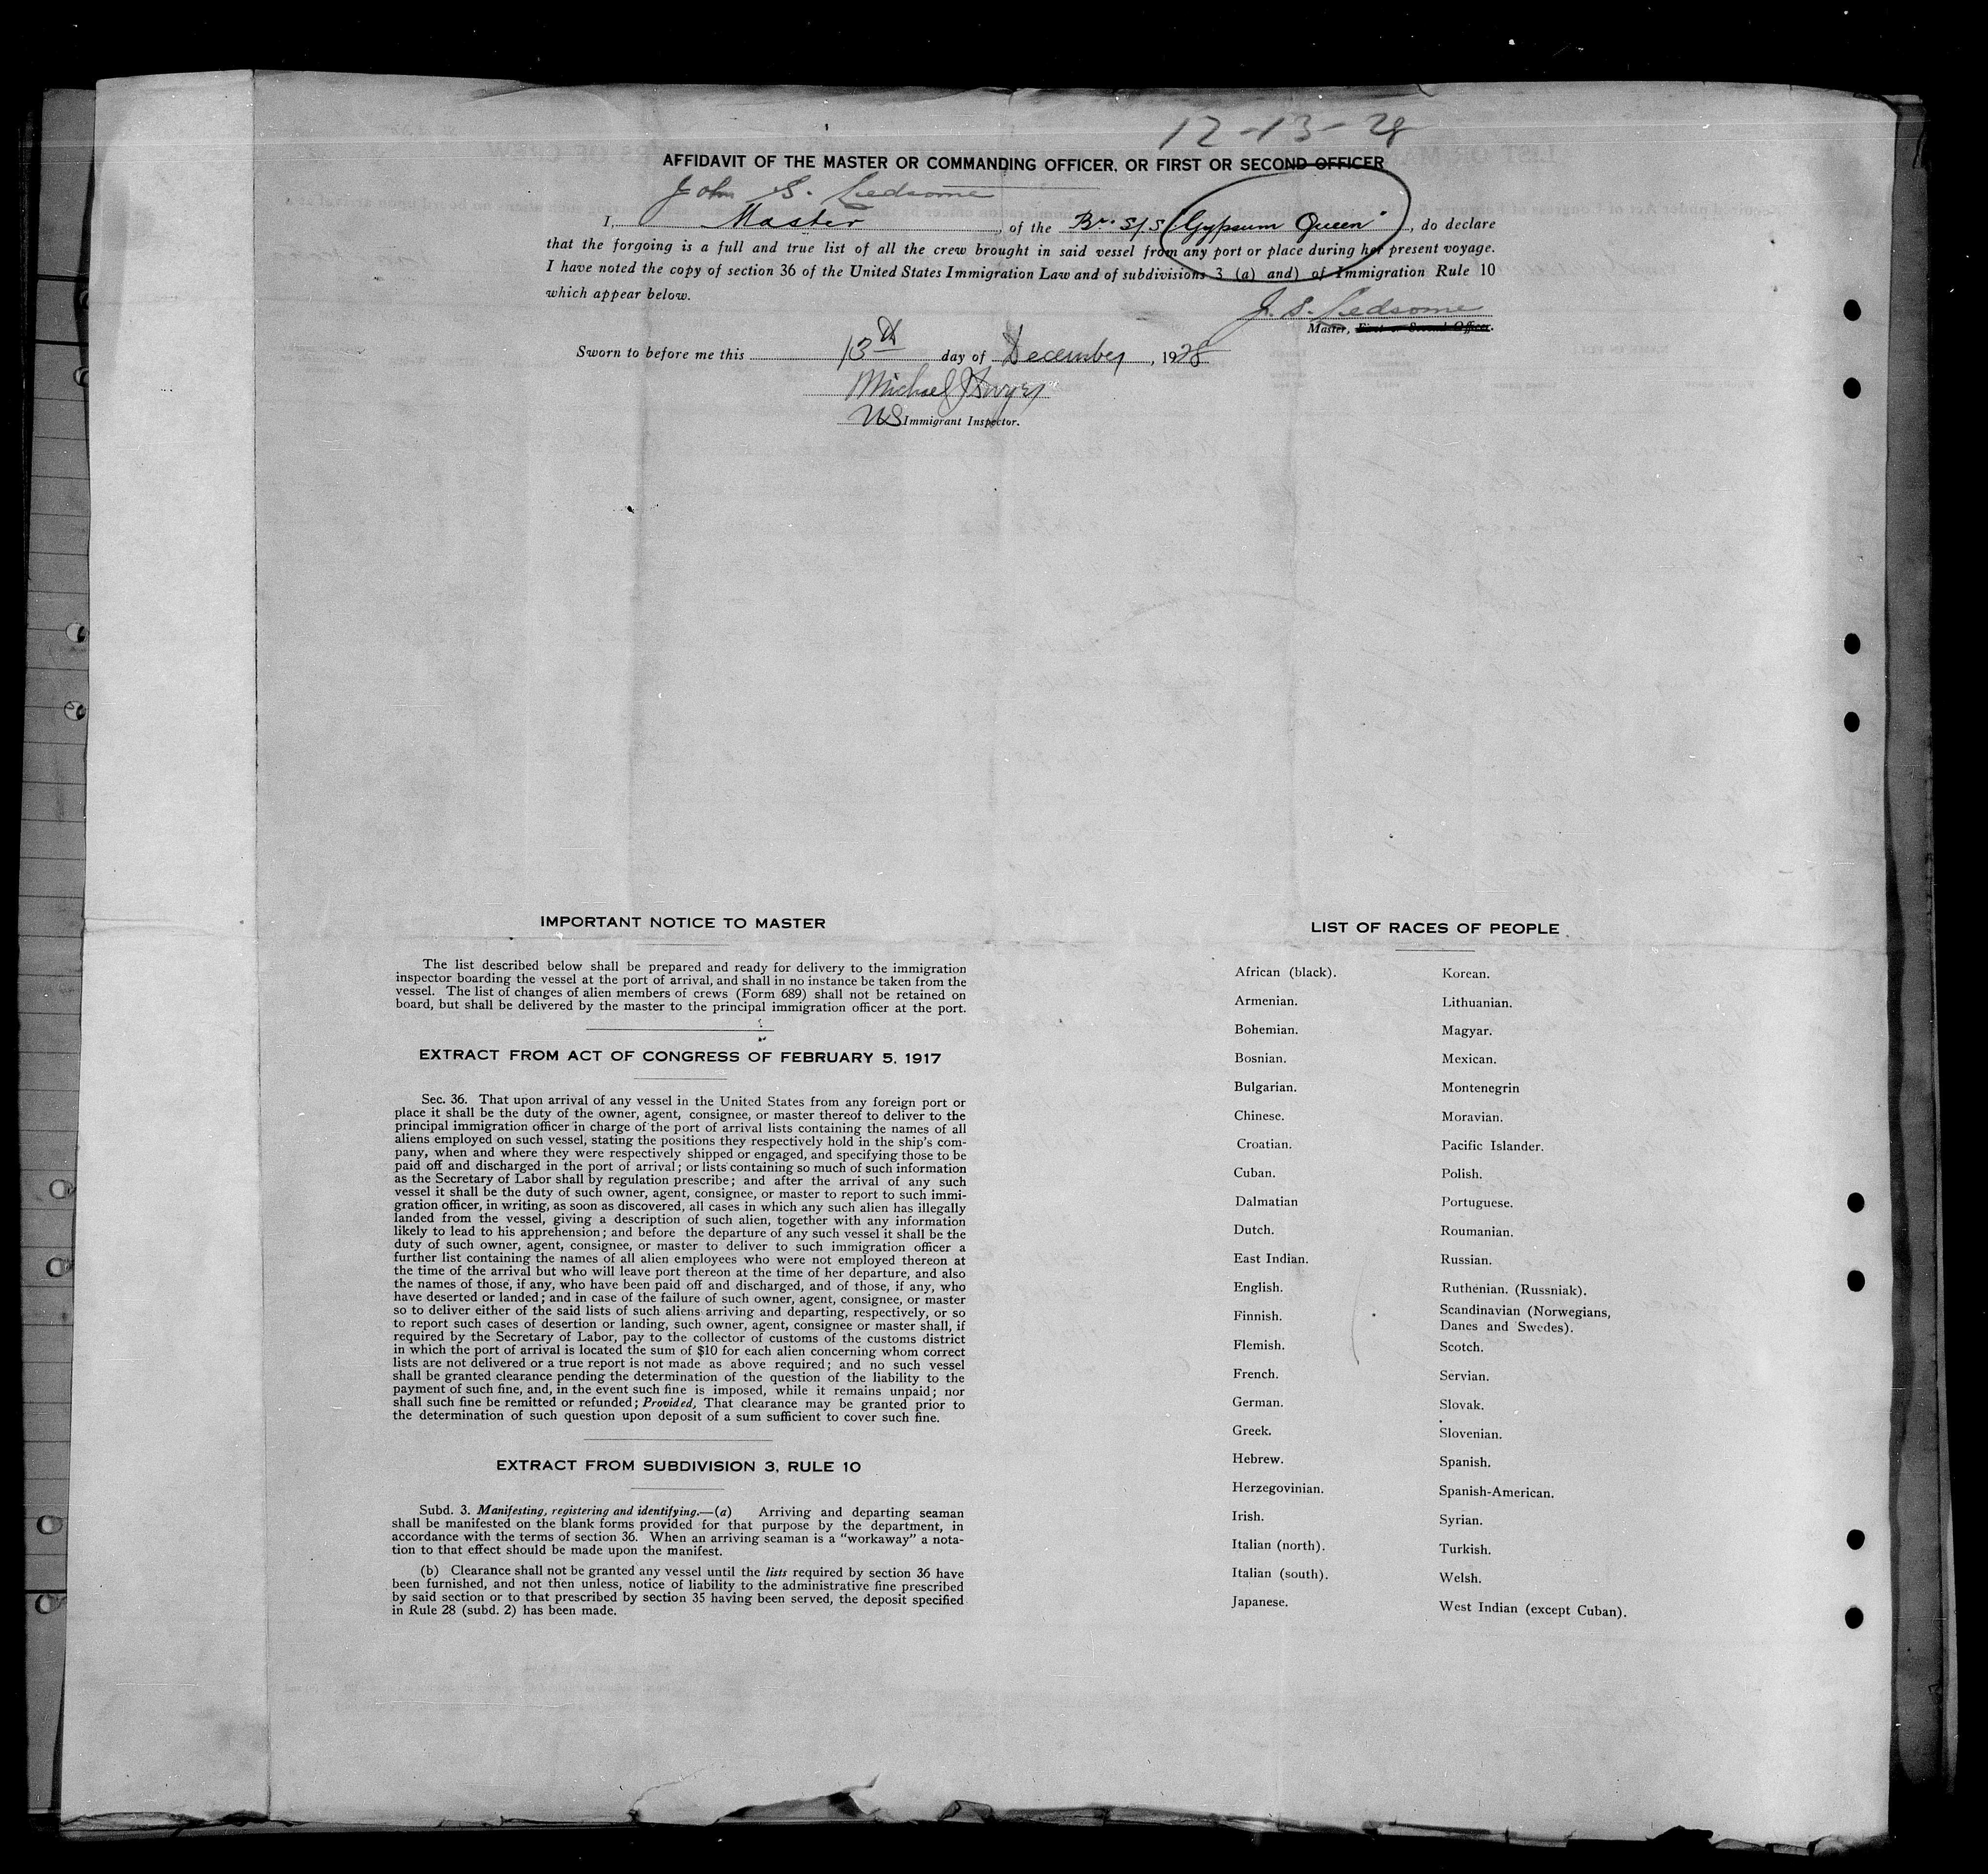 12-13-28
AFFIDAVIT OF THE MASTER OR COMMANDING OFFICER, OR FIRST OR SECOND OFFICER
John S. Ledsome
I, Master, of the Br. S/S "Gypsum Queen", do declare
that the forgoing is a full and true list of all the crew brought in said vessel from any port or place during her present voyage.
I have noted the copy of section 36 of the United States Immigration Law and of subdivisions 3 (a) and) of Immigration Rule 10
which appear below.
J. S. Ledsome
Master, First or Second Officer.
Sworn to before me this 13th day of December, 1928
Michael J Dwyer
US Immigrant Inspector.
IMPORTANT NOTICE TO MASTER
The list described below shall be prepared and ready for delivery to the immigration
inspector boarding the vessel at the port of arrival, and shall in no instance be taken from the
vessel. The list of changes of alien members of crews (Form 689) shall not be retained on
board, but shall be delivered by the master to the principal immigration officer at the port.
EXTRACT FROM ACT OF CONGRESS OF FEBRUARY 5, 1917
Sec. 36. That upon arrival of any vessel in the United States from any foreign port or
place it shall be the duty of the owner, agent, consignee, or master thereof to deliver to the
principal immigration officer in charge of the port of arrival lists containing the names of all
aliens employed on such vessel, stating the positions they respectively hold in the ship's com-
pany, when and where they were respectively shipped or engaged, and specifying those to be
paid off and discharged in the port of arrival; or lists containing so much of such information
as the Secretary of Labor shall by regulation prescribe; and after the arrival of any such
vessel it shall be the duty of such owner, agent, consignee, or master to report to such immi-
gration officer, in writing, as soon as discovered, all cases in which any such alien has illegally
landed from the vessel, giving a description of such alien, together with any information
likely to lead to his apprehension; and before the departure of any such vessel it shall be the
duty of such owner, agent, consignee, or master to deliver to such immigration officer a
further list containing the names of all alien employees who were not employed thereon at
the time of the arrival but who will leave port thereon at the time of her departure, and also
the names of those, if any, who have been paid off and discharged, and of those, if any, who
have deserted or landed; and in case of the failure of such owner, agent, consignee, or master
so to deliver either of the said lists of such aliens arriving and departing, respectively, or so
to report such cases of desertion or landing, such owner, agent, consignee or master shall, if
required by the Secretary of Labor, pay to the collector of customs of the customs district
in which the port of arrival is located the sum of $10 for each alien concerning whom correct
lists are not delivered or a true report is not made as above required; and no such vessel
shall be granted clearance pending the determination of the question of the liability to the
payment of such fine, and, in the event such fine is imposed, while it remains unpaid; nor
shall such fine be remitted or refunded; Provided, That clearance may be granted prior to
the determination of such question upon deposit of a sum sufficient to cover such fine.
EXTRACT FROM SUBDIVISION 3, RULE 10
Subd. 3. Manifesting, registering and identifying.—(a) Arriving and departing seaman
shall be manifested on the blank forms provided for that purpose by the department, in
accordance with the terms of section 36. When an arriving seaman is a "workaway" a nota-
tion to that effect should be made upon the manifest.
(b) Clearance shall not be granted any vessel until the lists required by section 36 have
been furnished, and not then unless, notice of liability to the administrative fine prescribed
by said section or to that prescribed by section 35 having been served, the deposit specified
in Rule 28 (subd. 2) has been made.
LIST OF RACES OF PEOPLE
African (black).
Armenian.
Bohemian.
Bosnian.
Bulgarian.
Chinese.
Croatian.
Cuban.
Dalmatian
Dutch.
East Indian.
English.
Finnish.
Flemish.
French.
German.
Greek.
Hebrew.
Herzegovinian.
Irish.
Italian (north).
Italian (south).
Japanese.
Korean.
Lithuanian.
Magyar.
Mexican.
Montenegrin
Moravian.
Pacific Islander.
Polish.
Portuguese.
Roumanian.
Russian.
Ruthenian. (Russniak).
Scandinavian (Norwegians,
Danes and Swedes).
Scotch.
Servian.
Slovak.
Slovenian.
Spanish.
Spanish-American.
Syrian.
Turkish.
Welsh.
West Indian (except Cuban).